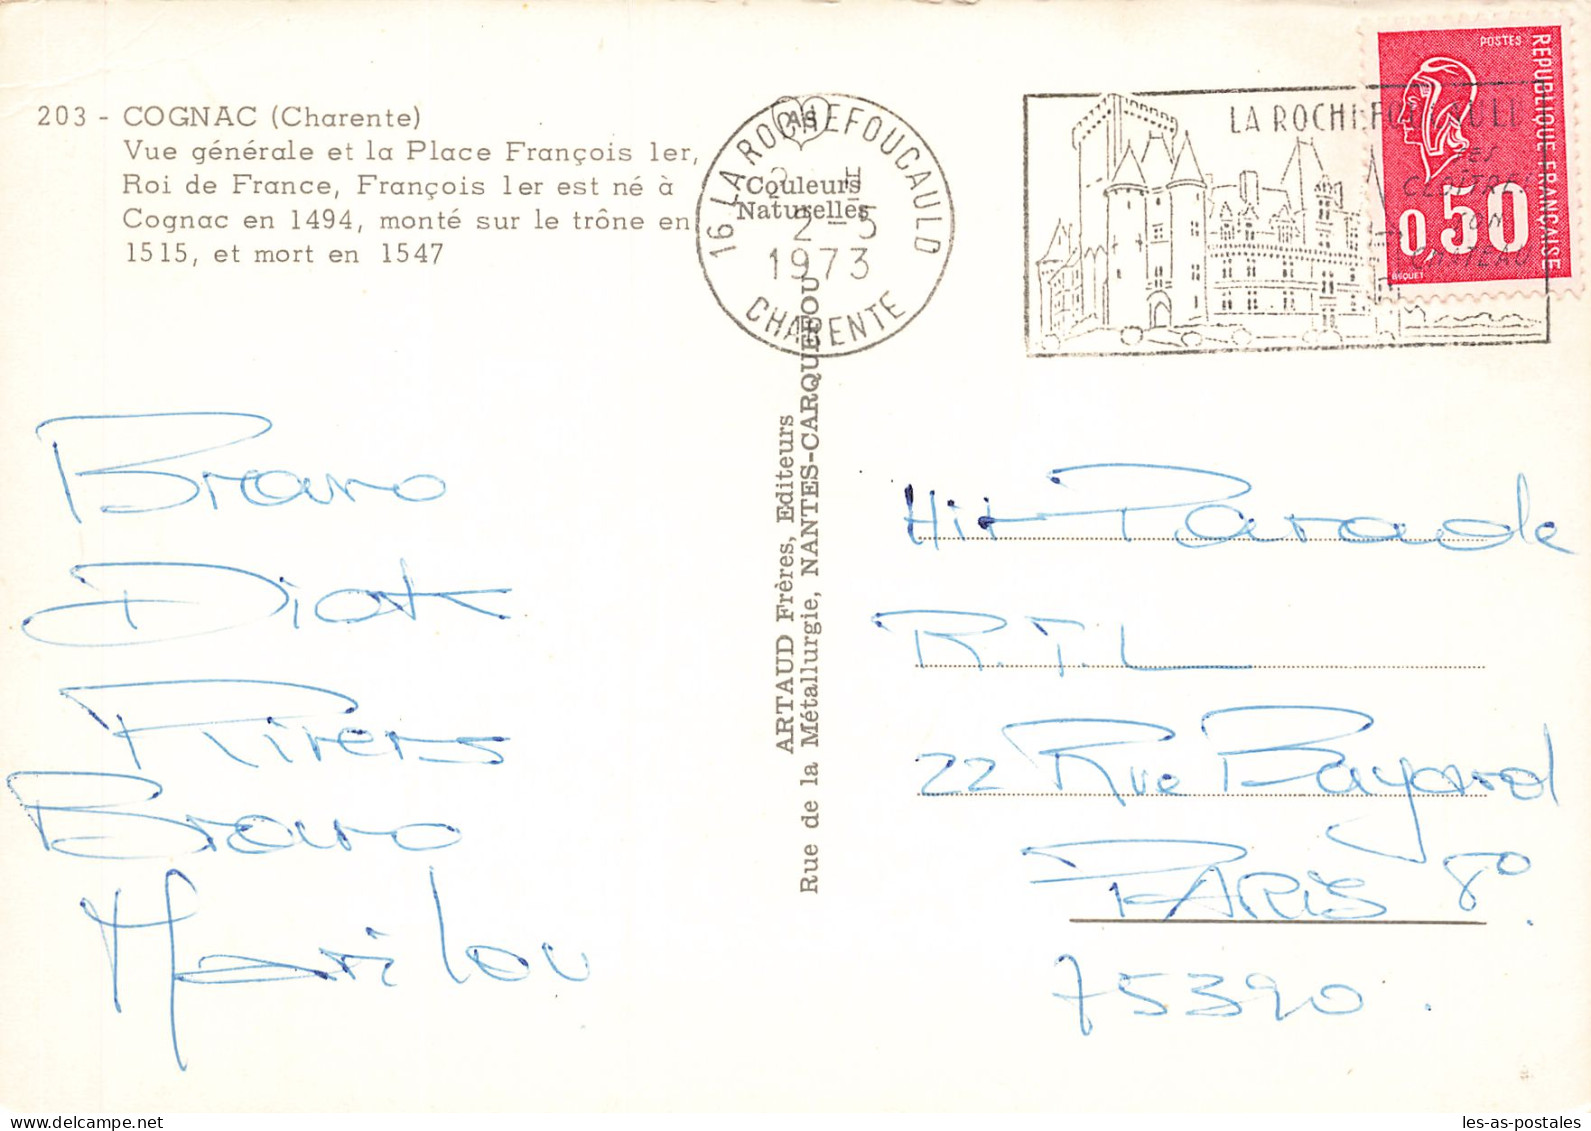 203 - COGNAC (Charente)
Vue générale et la Place François 1er,
Roi de France, François 1er est né à
Cognac en 1494, monté sur le trône en
1515, et mort en 1547
Couleurs
Naturelles
16 LA ROCHEFOUCAULD
2-5
1973
CHARENTE
LA ROCHEFOUCAULD
SES
CLOITRES
SON
CHATEAU
POSTES
REPUBLIQUE FRANÇAISE
0,50
BEQUET
ARTAUD Frères, Editeurs
Rue de la Métallurgie, NANTES-CARQUEFOU
Bravo
Diot
Rivers
Bravo
Marilou
Hit Parade
R.T.L
22 Rue Bayard
PARIS 8°.
75390.
les-as-postales
delcampe.net